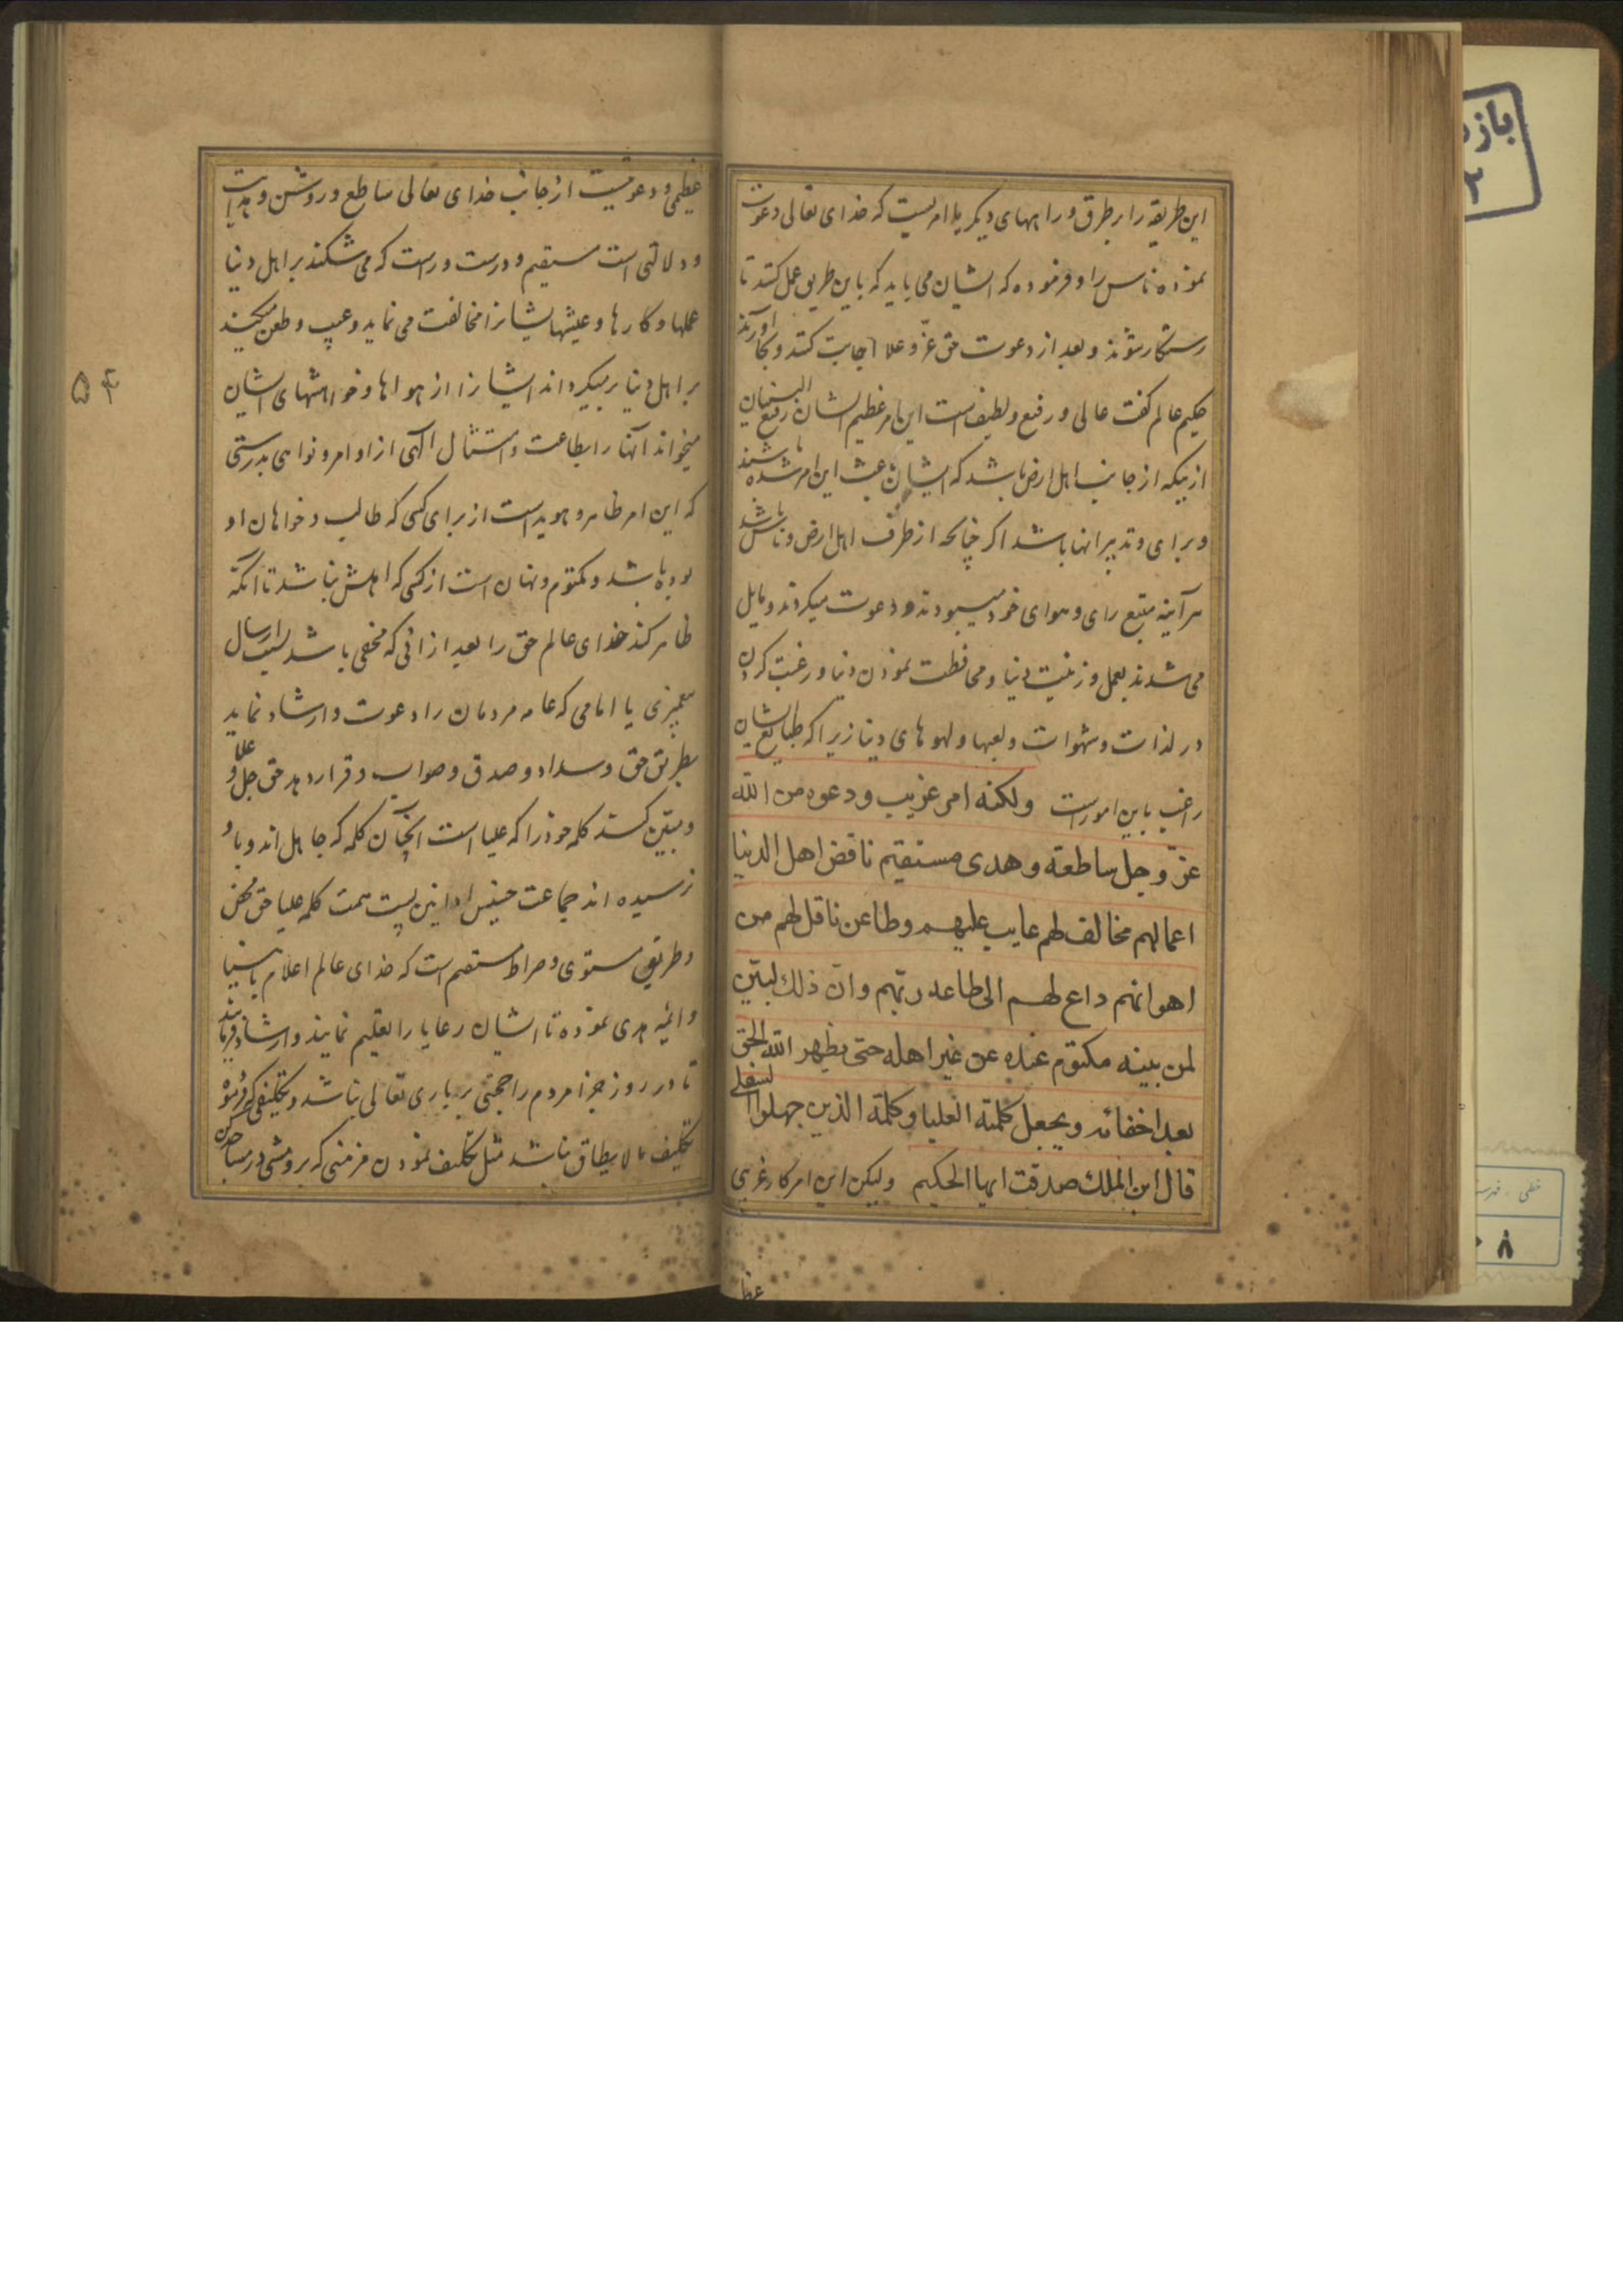 این طریقه را بر طرق و راههای دیگر یا امریست که خدای تعالی دعوت
نموده ناس را و فرموده که ایشان می باید که باین طریق عمل کنند تا
رستگار شوند و بعد از دعوت حق عزّ و علا اجابت کنند و بجا آورند
حکیم عالم گفت عالی و رفیع و لطیف است این امر عظیم الشان رفیع البنیان
از بیکه از جانب اهل ارض باشد که ایشان باعث این امر شده باشند
و برای و تدبیر انها باشد اگر چنانچه از طرف اهل ارض و ناس باشد
هر آینه متبع رای و هوای خود میبودند و دعوت میکردند و مایل
می شدند بعمل و زینت دنیا و محافظت نمودن دنیا و رغبت کردن
در لذات و شهوات و لعبها و لهوهای دنیا زیرا که طبایع ایشان
راغب باین امور است ولکنه امر غریب ودعوه من الله
عزّ وجل ساطعة وهدی مستقیم ناقض اهل الدنیا
اعمالهم مخالف لهم عایب علیهم وطاعن ناقل لهم من
اهوائهم داع لهم الی طاعه ربّهم وانّ ذلك لبیّن
لمن بینه مکتوم عنده عن غیر اهله حتی یظهر الله الحق
بعد اخفائه ویجعل کلمته العلیا وکلمة الذین جهلوا السفلی
قال ابن الملك صدقت ایها الحکیم ولیکن این امر کار غربی
عظ
عظیمی و دعوتیست از جانب خدای تعالی ساطع و روشن و هدایت
و دلالتی است مستقیم و درست و راست که می شکند بر اهل دنیا
عملها و کارها و عیشهای ایشانرا مخالفت می نماید و عیب و طعن میکند
بر اهل دنیا برمیگرداند ایشانرا از هواها و خواهشهای ایشان
میخواند آنها را بطاعت و امتثال الهی از اوامر و نواهی بدرستی
که این امر ظاهر و هویداست از برای کسی که طالب و خواهان او
بوده باشد و مکتوم و نهان است از کسی که اهلش نباشد تا آنکه
ظاهر کند خدای عالم حق را بعد از آنی که مخفی باشد بسبب ارسال
پیغمبری یا امامی که عامه مردمان را دعوت و ارشاد نماید
بطریق حق و سداد و صدق و صواب و قرار دهد حق جل و علا
و مبیّن کند کلمه خود را که علیا است آنچنان کلمه که جاهل اند و باو
نرسیده اند جماعت خسیس ادانی پست همت کلمه علیا حق محض
و طریق مستوی و صراط مستقیم است که خدای عالم اعلام بانبیا
و ائمه هدی نموده تا ایشان رعایا را تعلیم نمایند و ارشاد فرمایند
تا در روز جزا مردم را حجتی بر باری تعالی نباشد و تکلیفی که فرموده
تکلیف ما لا یطاق نباشد مثل تکلیف نمودن مزمنی که برو مشی در مساجد کن
۵۴
باز
۲
خطی - فهرست
۸